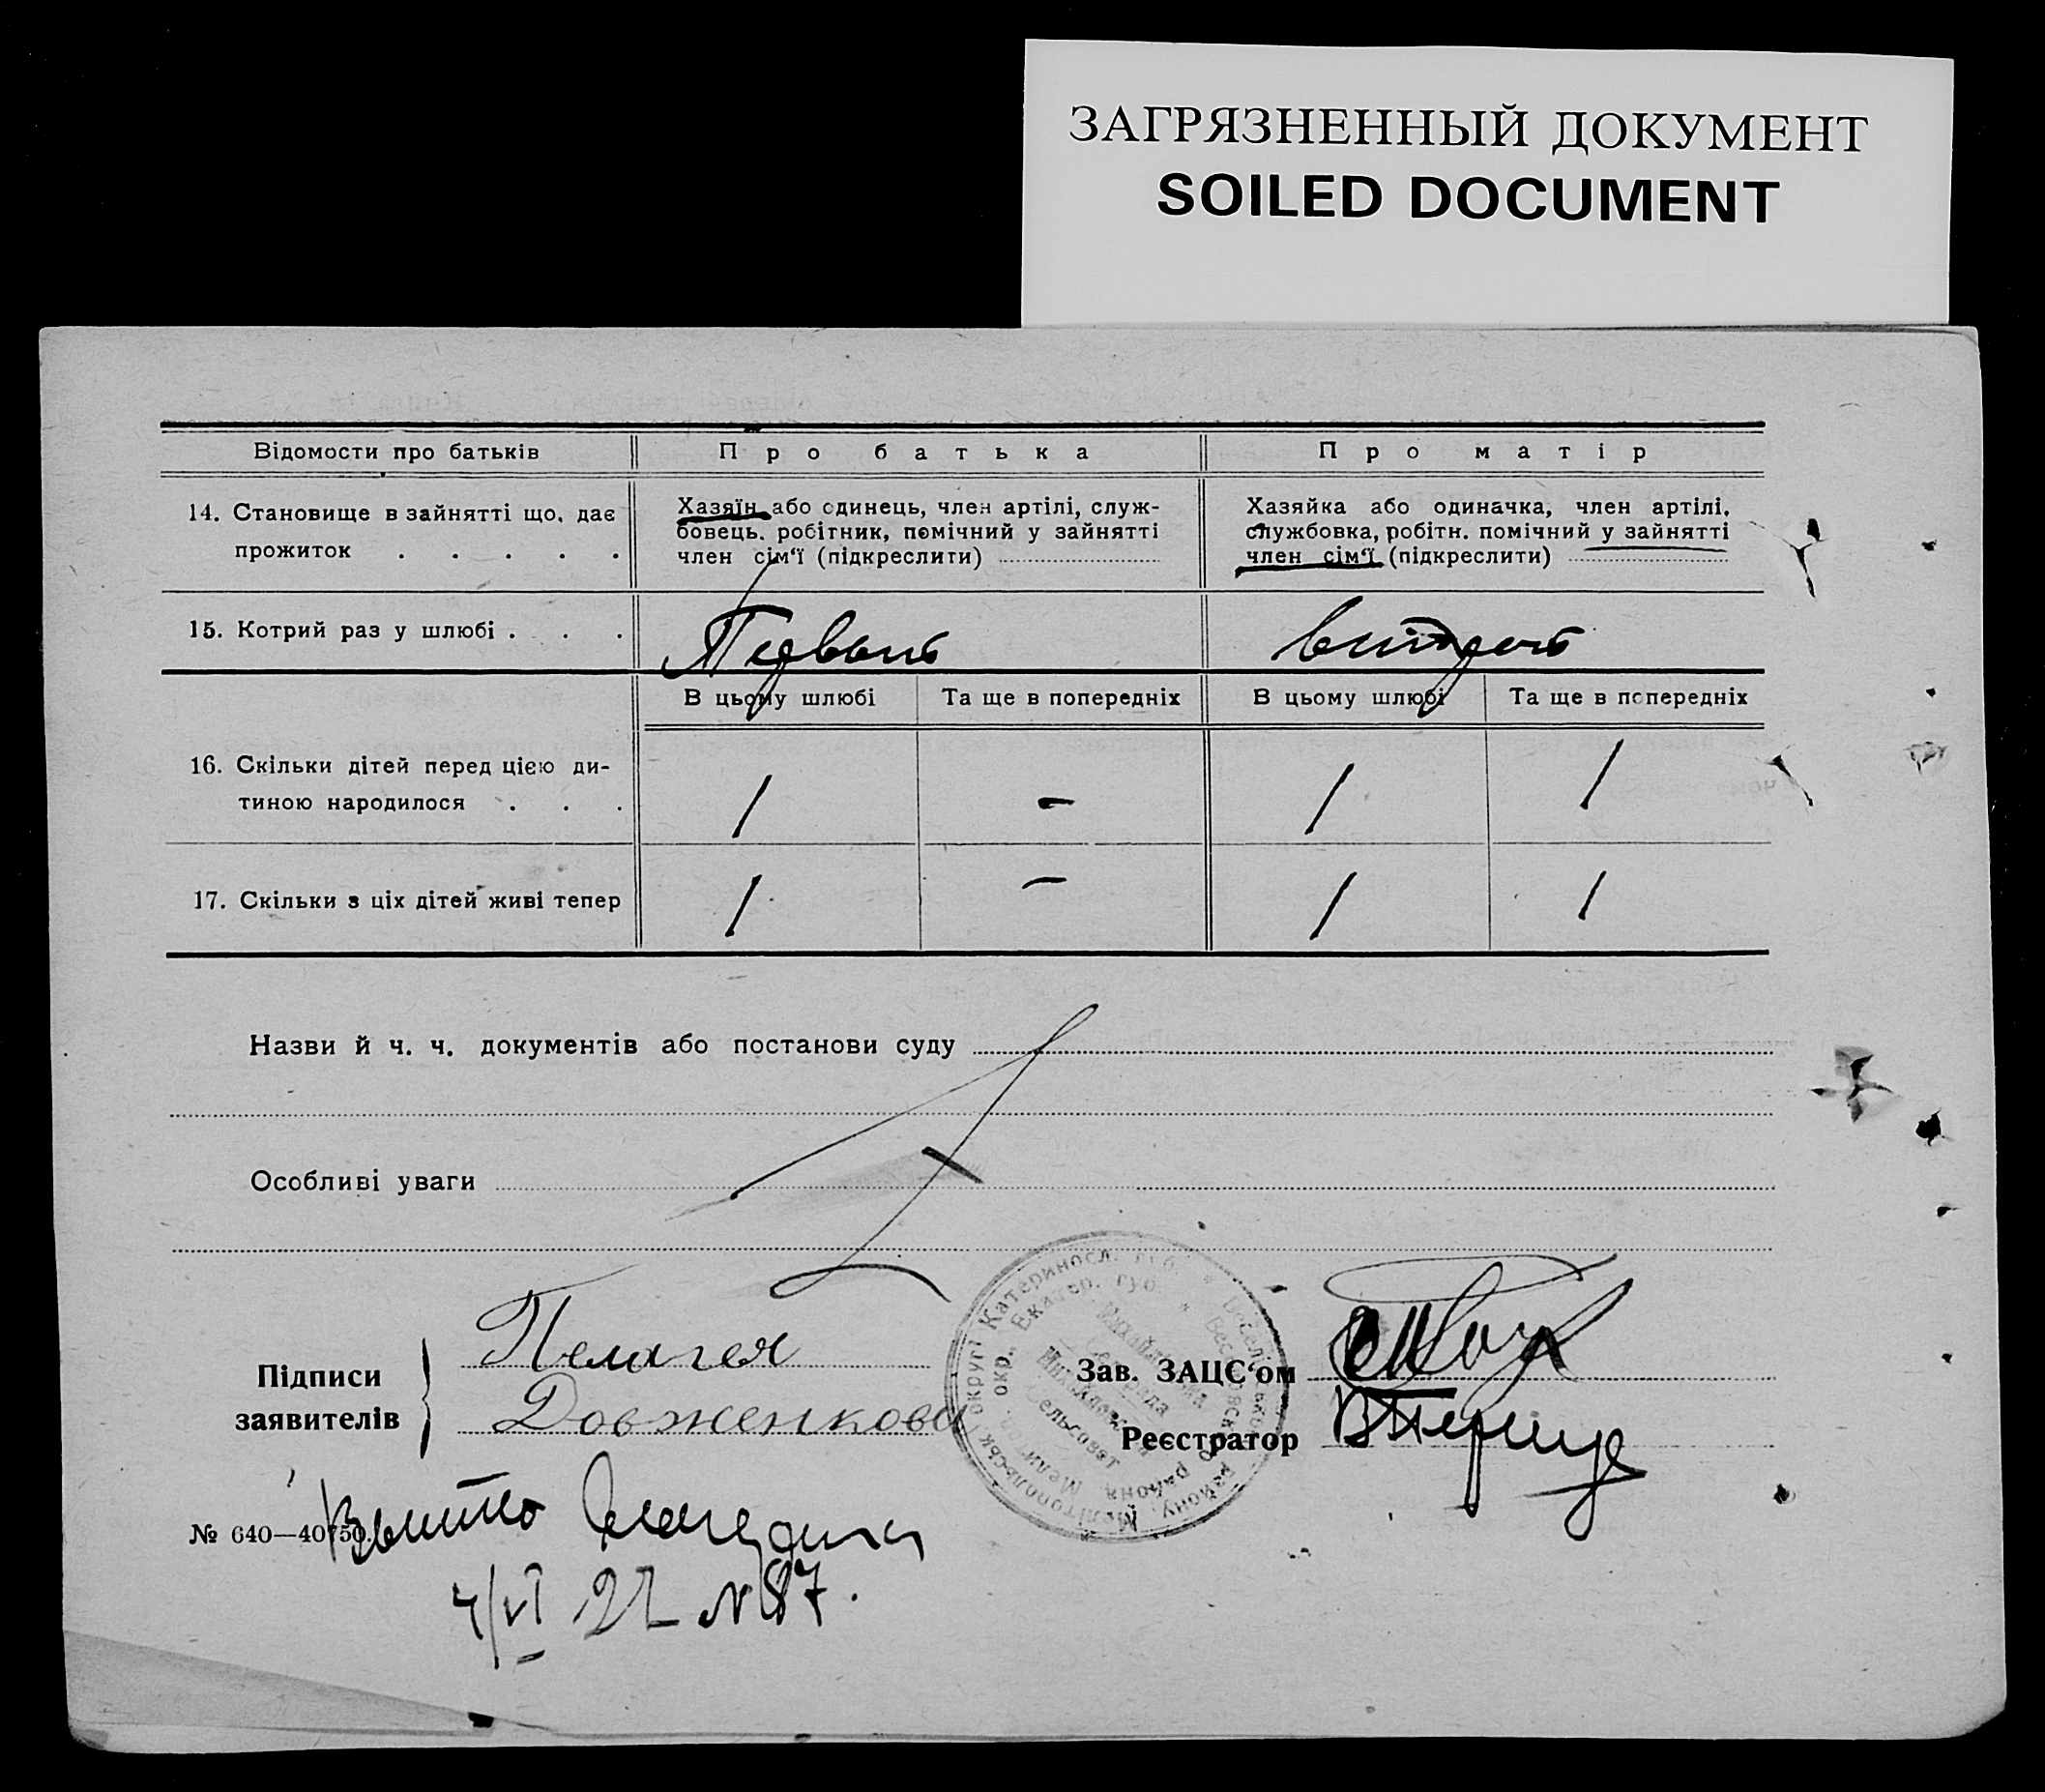 ЗАГРЯЗНЕННЫЙ ДОКУМЕНТ
SOILED DOCUMENT
Відомости про батьків Про батька Про матір
14. Становище в зайнятті що, дає прожиток . . . . .
Хазяїн або одинець, член артілі, служ-
бовець. робітник, помічний у зайнятті
член сім'ї (підкреслити)
Хазяйка або одиначка, член артілі,
службовка, робітн. помічний у зайнятті
член сім'ї (підкреслити)
15. Котрий раз у шлюбі . . .
В цьому шлюбі Та ще в попередніх В цьому шлюбі Та ще в попередніх
16. Скільки дітей перед цією ди-
тиною народилося . . . 1 - 1 1
17. Скільки з ціх дітей живі тепер 1 - 1 1
Назви й ч. ч. документів або постанови суду
Особливі уваги
Підписи
заявителів
Пелагея
Довженкова
Зав. ЗАЦС'ом
Реєстратор
№ 640—40750
4/VI 27 N 87.